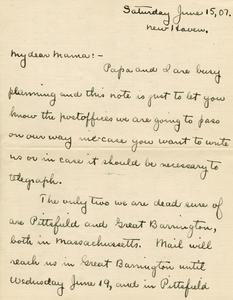 Saturday June 15, 07.
New Haven.
My dear Mama:-
Papa and I are busy
planning and this note is just to let you
know the postoffices we are going to pass
on our way in case you want to write
us or in case it should be necessary to
telegraph.
The only two we are dead sure of
are Pittsfield and Great Barrington,
both in Massachusetts. Mail will
reach us in Great Barrington until
Wednesday June 19, and in Pittsfield